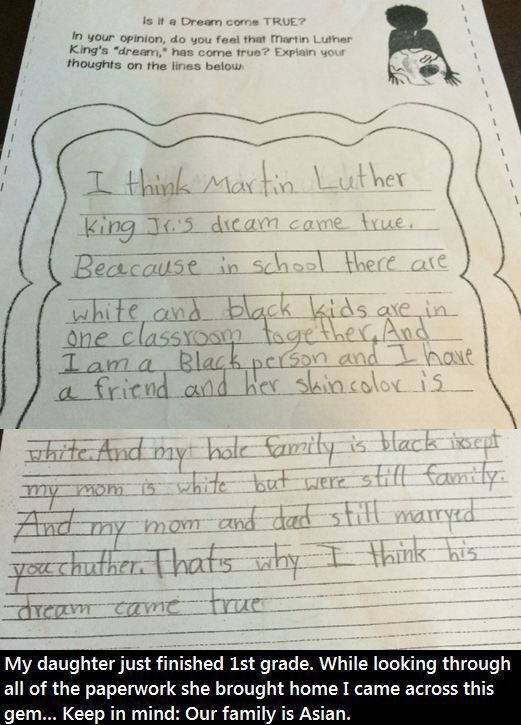 Is it a Dream come TRUE?
In your opinion, do you feel that Martin Luther
King's "dream," has come true? Explain your
thoughts on the lines below.
I think Martin Luther
King Jr.'s dream came true.
Beacause in school there are
white and black kids are in
one classroom together. And
I am a Black person and I have
a friend and her skin color is
white. And my hole family is black ixsept
my mom is white but were still family.
And my mom and dad still marryed
youchuther. That's why I think his
dream came true
My daughter just finished 1st grade. While looking through
all of the paperwork she brought home I came across this
gem... Keep in mind: Our family is Asian.